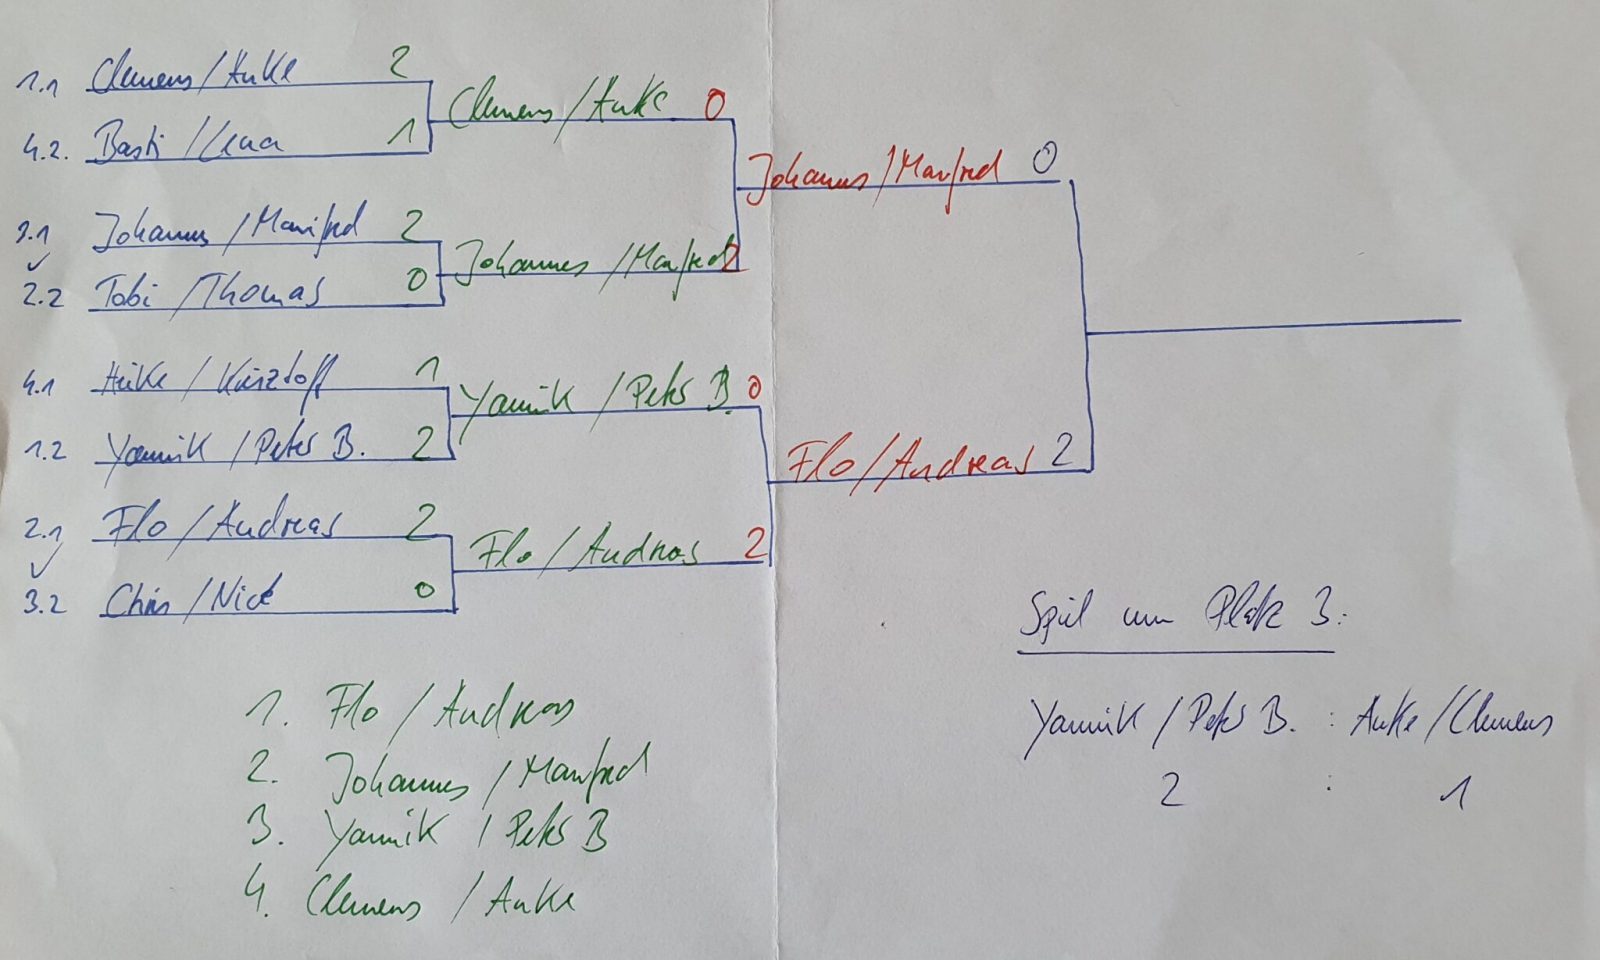 1.1 Clemens / Anke 2
4.2. Basti / Lena 1
Clemens / Anke 0
3.1 Johannes / Manfred 2
2.2 Tobi / Thomas 0
Johannes / Manfred 2
Johannes / Manfred 0
4.1 Heike / 1
1.2 Yannik / Peter B. 2
Yannik / Peter B. 0
2.1 Flo / Andreas 2
3.2 Chris / Nick 0
Flo / Andreas 2
Flo / Andreas 2
Spiel um Platz 3:
Yannik / Peter B. : Anke / Clemens
2 : 1
1. Flo / Andreas
2. Johannes / Manfred
3. Yannik / Peter B
4. Clemens / Anke